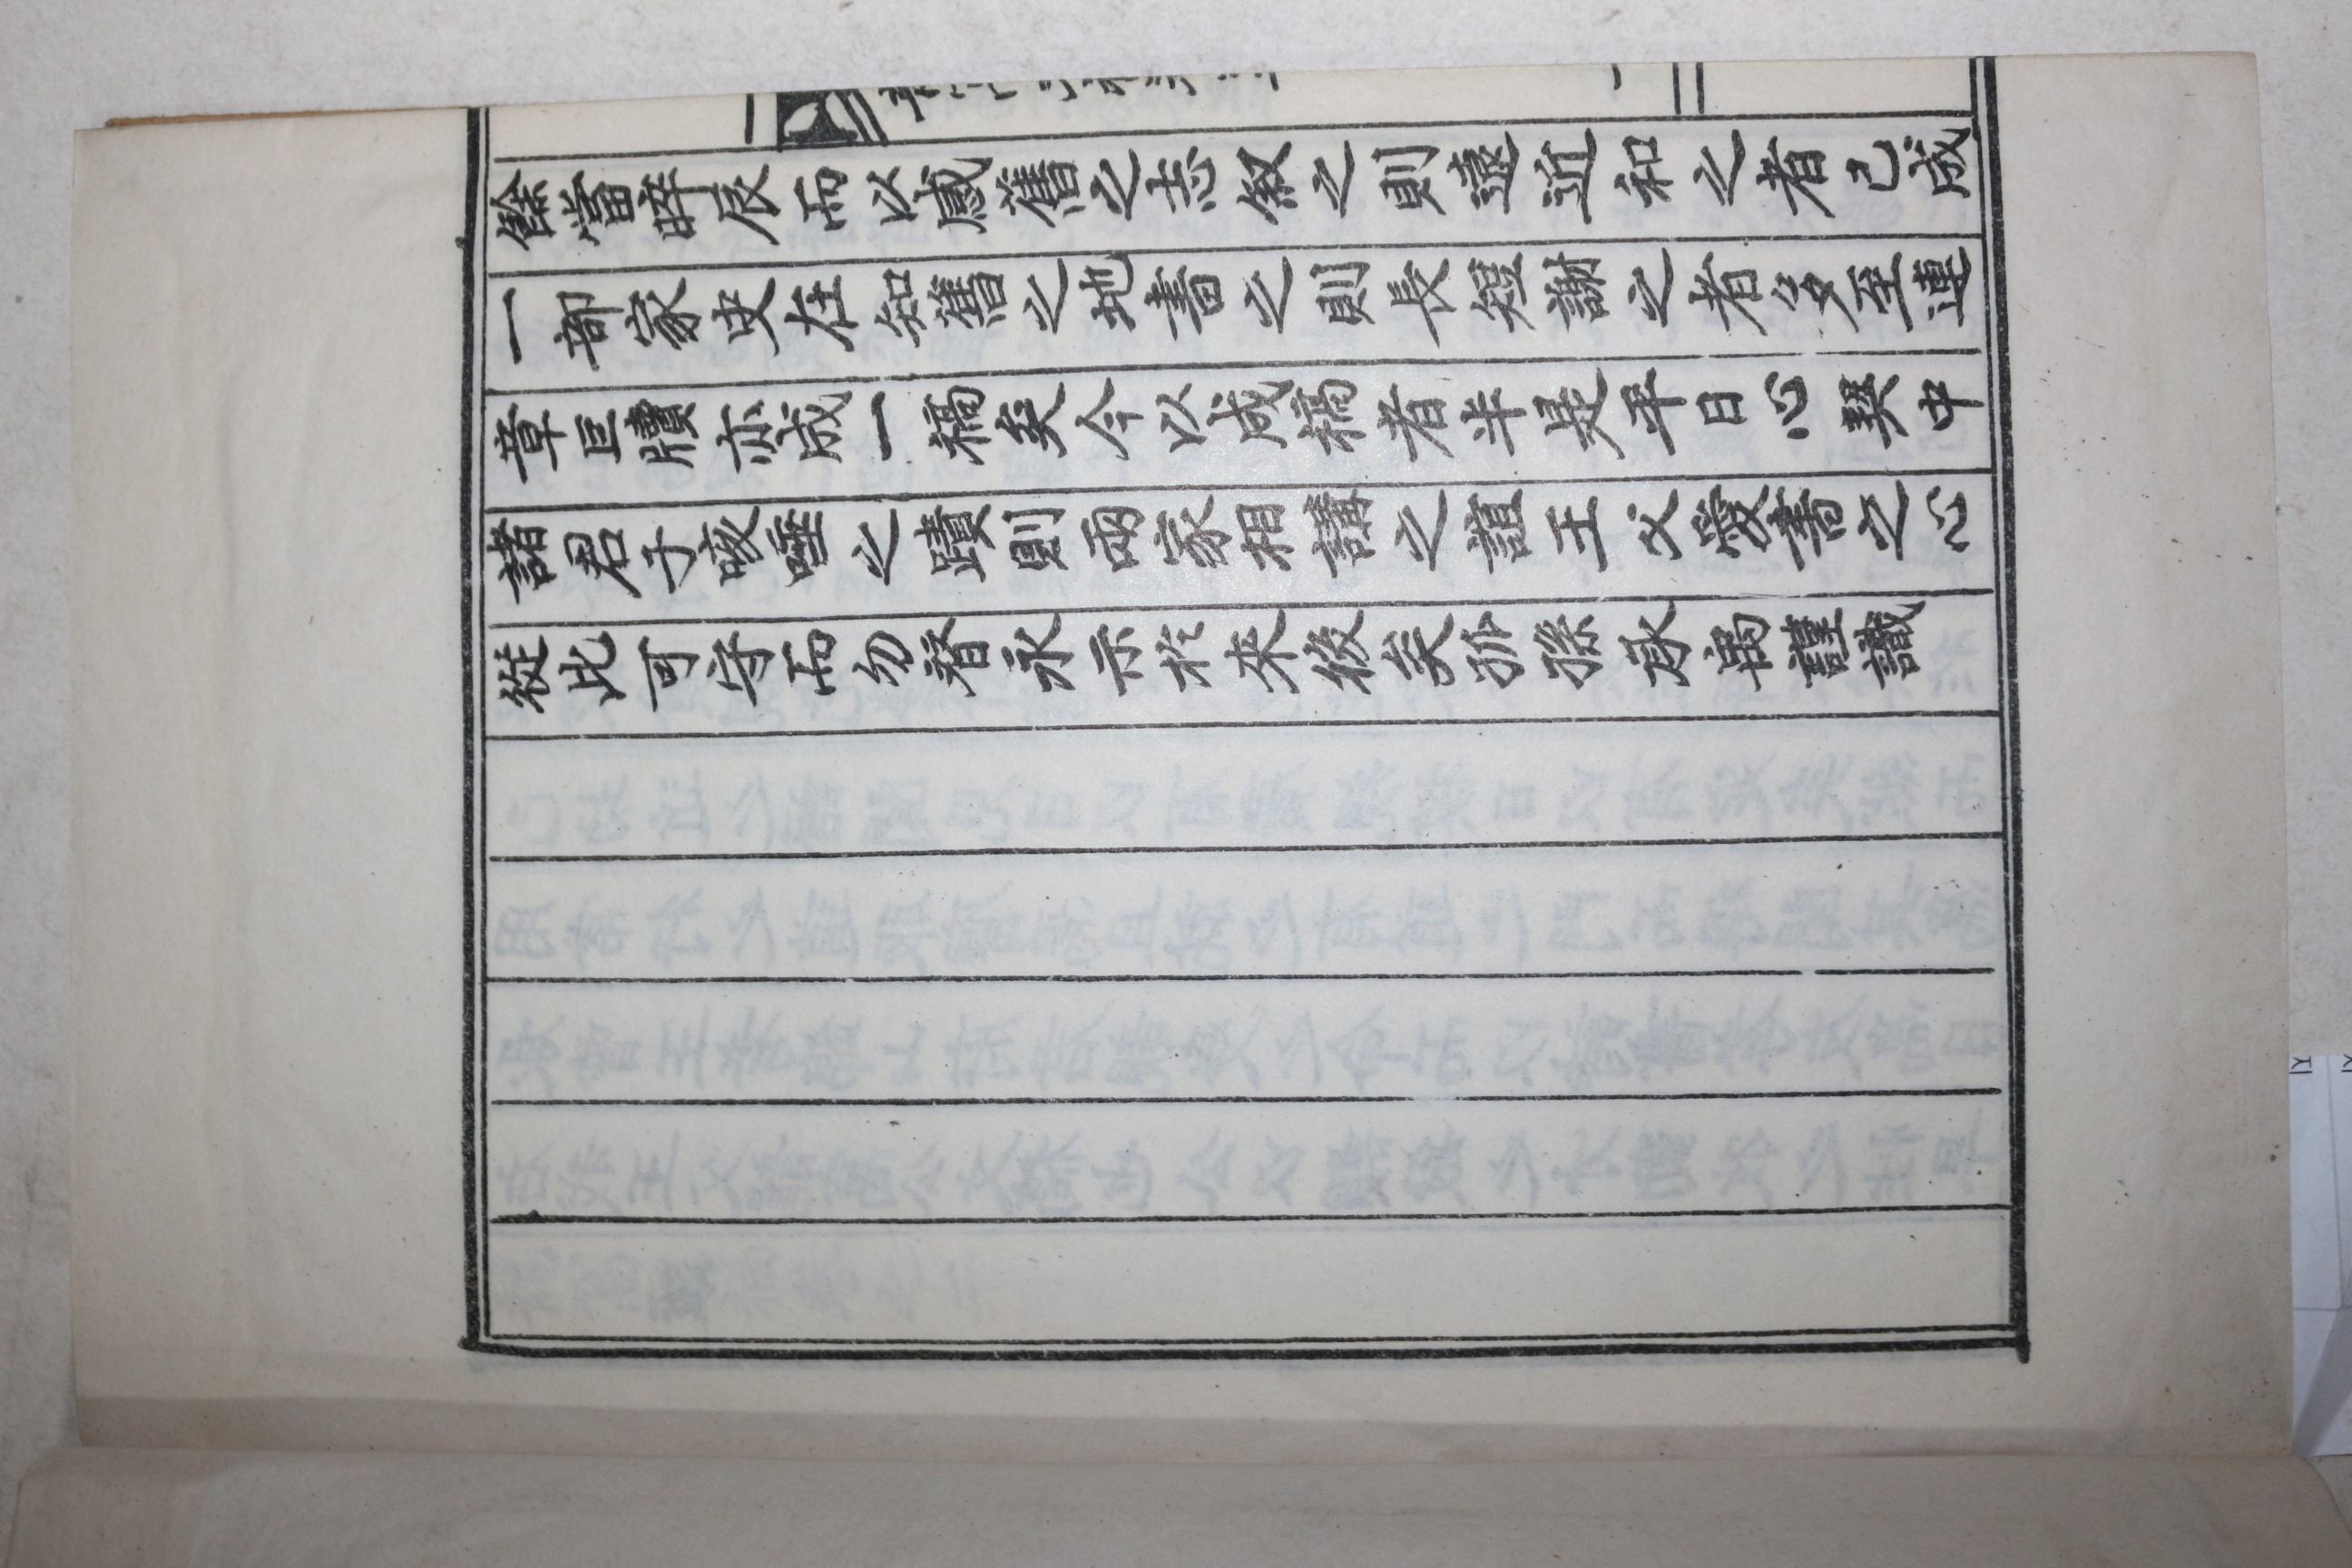 餘當晬辰而以感舊之志敘之則遠近和之者已成
一部家史在知舊之地書之則長短謝之者多至連
章巨牘亦成一稿矣今以成稿者半是平日心契中
諸君子咳唾之蹟則兩家相講之誼王父發書之心
從此可守而勿替永示於來後矣弥孫承萬謹識